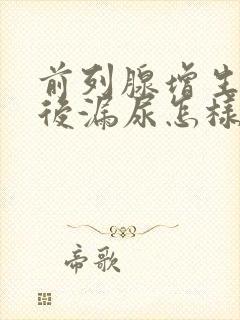 前列腺增生
後漏尿怎樣
帝歌